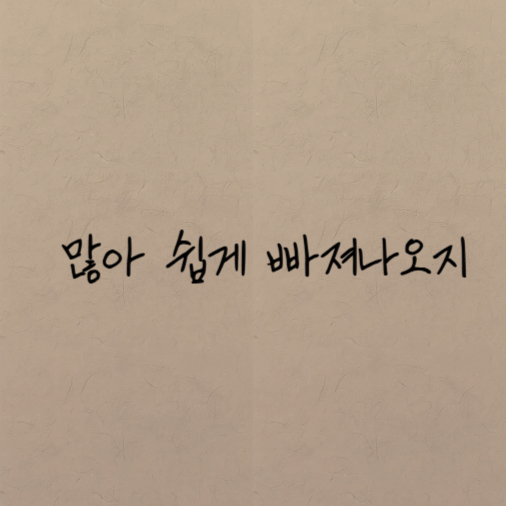 많아 쉽게 빠져나오지